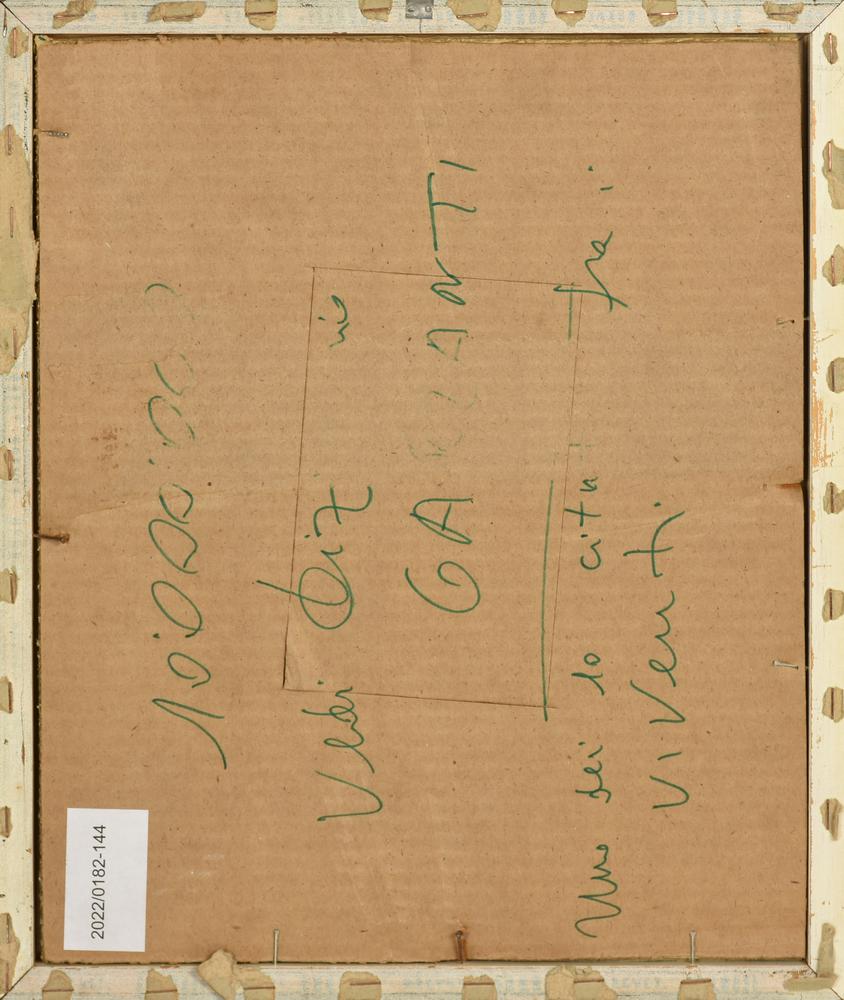 2022/0182-144
10.000.000
Vedi Diz
GARZANTI
Uno dei 10 citati fra i
viventi